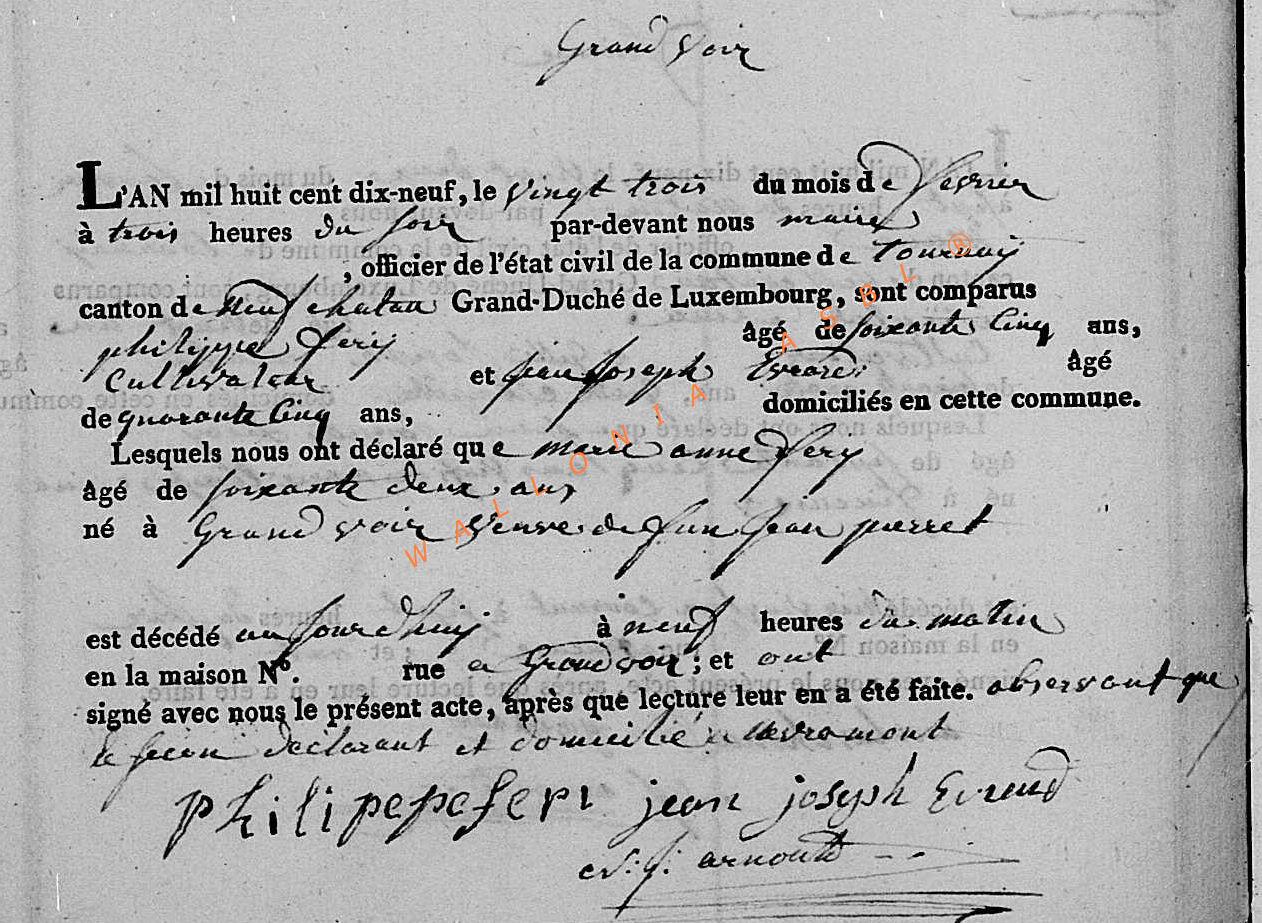 Grand voir
L'AN mil huit cent dix-neuf, le vingt trois du mois de fevrier
à trois heures du soir par-devant nous maire
, officier de l'état civil de la commune de tournay
canton de Neufchatau Grand-Duché de Luxembourg, sont comparus
philippe fery âgé de soixante Cinq ans,
Cultivateur et jean joseph Evrard âgé
de quarante Cinq ans, domiciliés en cette commune.
Lesquels nous ont déclaré que marie anne fery
âgé de soixante deux ans
né à Grand voir veuve de feu jean pierret
est décédé aujourd'huy à neuf heures du matin
en la maison N°. rue a Grandvoir ; et ont
signé avec nous le présent acte, après que lecture leur en a été faite. observant que
le declarant et domicilié a
philipe feri jean joseph Evraud
arnould
WALLONIA ASBL ®